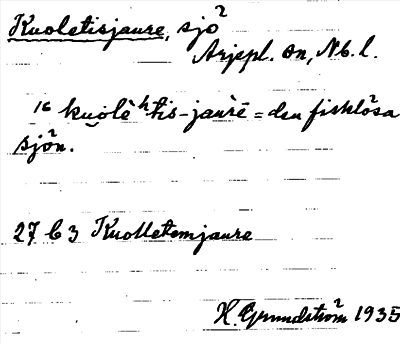 Kuoletisjaure, sjö
Arjepl. sn, Nb. l.
16 kuo̯lēhtis-jaùrē = den fisklösa
sjön.
27 C 3 Kuolletemjaure
H. Grundström 1935